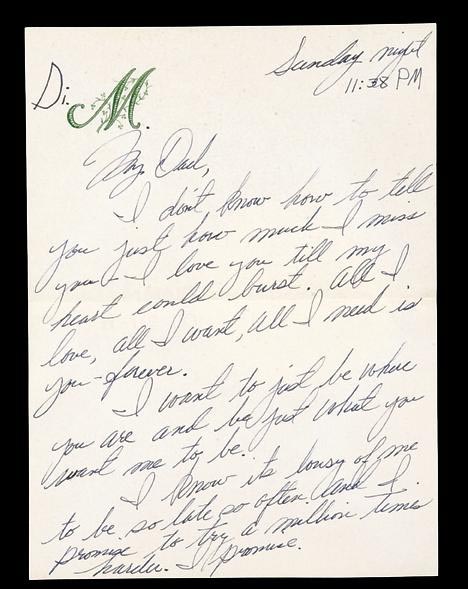 Sunday night
11:38 PM
Di. M.
My Dad,
I don't know how to tell
you just how much I miss
you - I love you till my
heart could burst. All I
love, all I want, all I need is
you - forever.
I want to just be where
you are and be just what you
want me to be.
I know it's lousy of me
to be so late so often and I
promise to try a million times
harder. I promise.